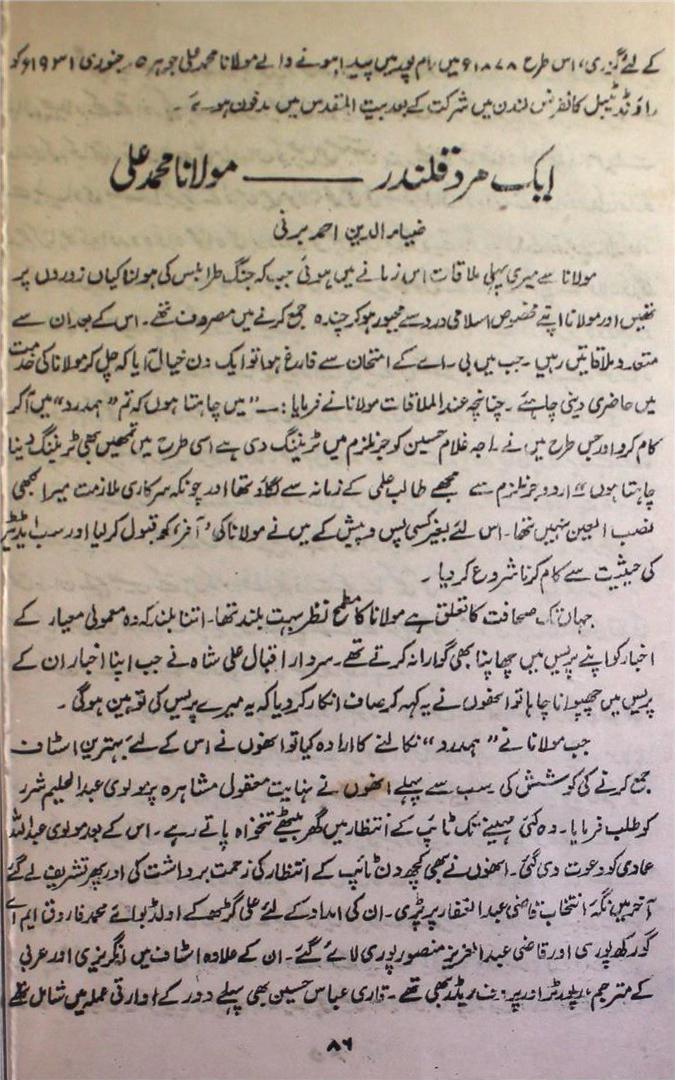 کے لئے گزری، اس طرح ۱۸۷۸ء میں رام پور میں پیدا ہونے والے مولانا محمد علی جوہر ۵ر جنوری ۱۹۳۱ء کو
راؤنڈ ٹیبل کانفرنس لندن میں شرکت کے بعد بیت المقدس میں مدفون ہوئے۔
ایک مرد قلندر ——— مولانا محمد علی
ضیاء الدین احمد برنی
مولانا سے میری پہلی ملاقات اس زمانے میں ہوئی جب کہ جنگ طرابلس کی ہولناکیاں زوروں پر
تھیں اور مولانا اپنے مخصوص اسلامی درد سے مجبور ہو کر چندہ جمع کرنے میں مصروف تھے۔ اس کے بعد ان سے
متعدد ملاقاتیں رہیں۔ جب میں بی۔ اے کے امتحان سے فارغ ہوا تو ایک دن خیال آیا کہ چل کر مولانا کی خدمت
میں حاضری دینی چاہئے۔ چنانچہ عند الملاقات مولانا نے فرمایا :۔ "میں چاہتا ہوں کہ تم "ہمدرد" میں آکر
کام کرو اور جس طرح میں نے راجہ غلام حسین کو جرنلزم میں ٹریننگ دی ہے اسی طرح میں تمھیں بھی ٹریننگ دینا
چاہتا ہوں" اردو جرنلزم سے مجھے طالب علمی کے زمانہ سے لگاؤ تھا اور چونکہ سرکاری ملازمت میرا کبھی
نصب العین نہیں تھا۔ اس لئے بغیر کسی پس و پیش کے میں نے مولانا کی 'آفر' کو قبول کر لیا اور سب ایڈیٹر
کی حیثیت سے کام کرنا شروع کر دیا۔
جہاں تک صحافت کا تعلق ہے مولانا کا مطمح نظر بہت بلند تھا۔ اتنا بلند کہ وہ معمولی معیار کے
اخبار کو اپنے پریس میں چھاپنا بھی گوارا نہ کرتے تھے۔ سردار اقبال علی شاہ نے جب اپنا اخبار ان کے
پریس میں چھپوانا چاہا تو انھوں نے یہ کہہ کر صاف انکار کر دیا کہ یہ میرے پریس کی توہین ہوگی۔
جب مولانا نے "ہمدرد" نکالنے کا ارادہ کیا تو انھوں نے اس کے لئے بہترین اسٹاف
جمع کرنے کی کوشش کی سب سے پہلے انھوں نے نہایت معقول مشاہرہ پر مولوی عبدالحلیم شرر
کو طلب فرمایا۔ وہ کئی مہینے تک ٹائپ کے انتظار میں گھر بیٹھے تنخواہ پاتے رہے۔ اس کے بعد مولوی عبداللہ
عمادی کو دعوت دی گئی۔ انھوں نے بھی کچھ دن ٹائپ کے انتظار کی زحمت برداشت کی اور پھر تشریف لے گئے
آخر میں نگہ انتخاب قاضی عبدالغفار پر پڑی۔ ان کی امداد کے لئے علی گڑھ کے اولڈ بوائے محمد فاروق ایم اے
گورکھپوری اور قاضی عبدالعزیز منصور پوری لائے گئے۔ ان کے علاوہ اسٹاف میں انگریزی اور عربی
کے مترجم، رپورٹر اور پروف ریڈر بھی تھے۔ قاری عباس حسین بھی پہلے دور کے ادارتی عملہ میں شامل تھے
۸۶